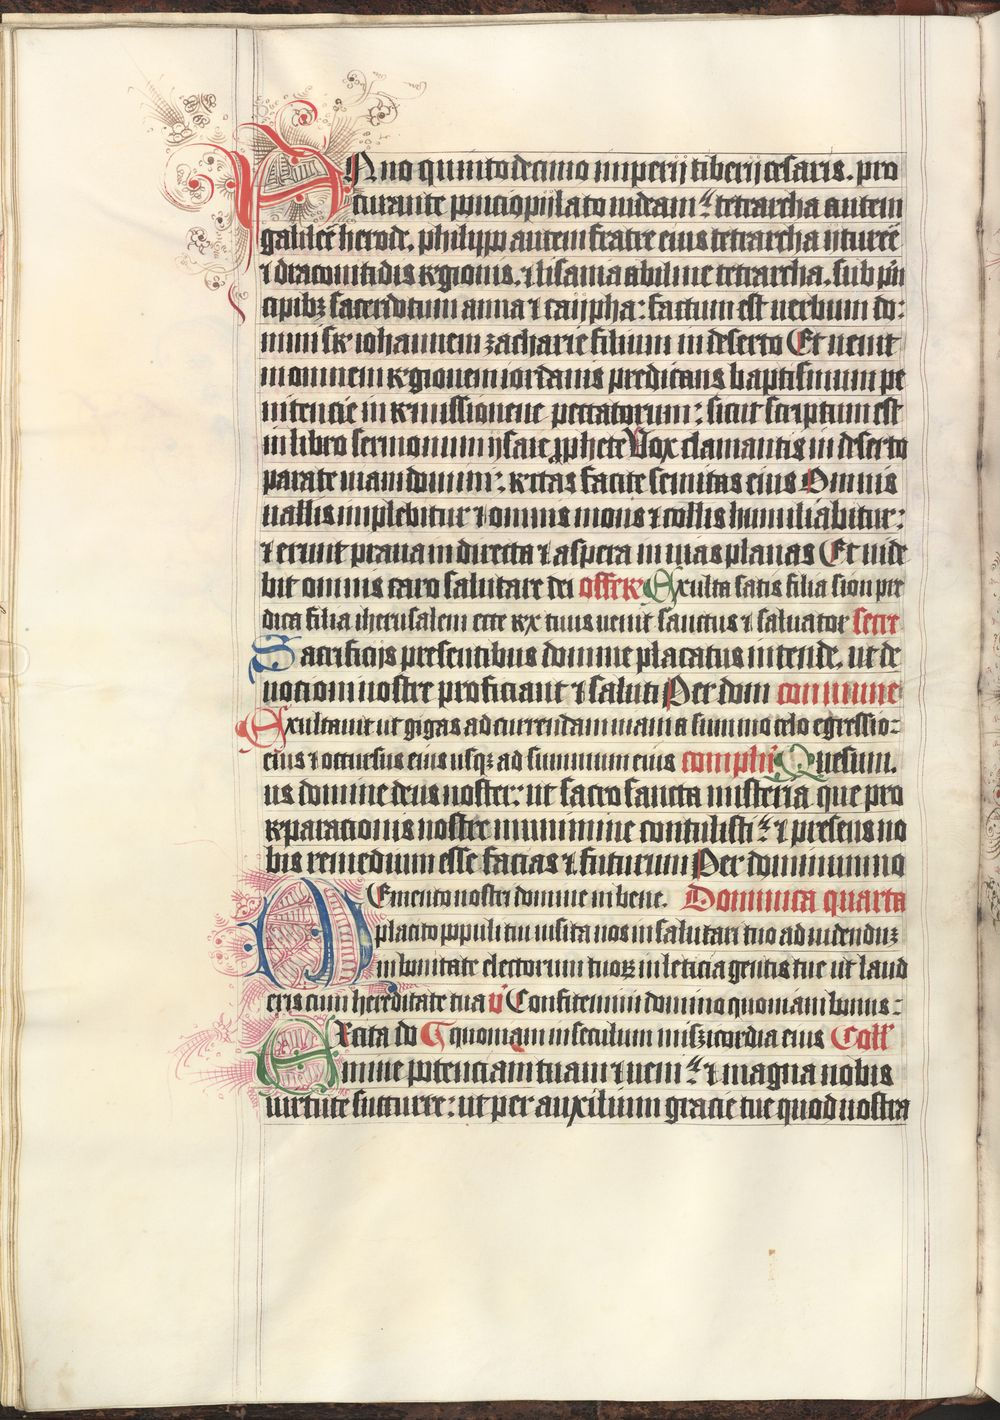 Anno quintodecimo imperij tiberij cesaris. pro
curante pnnciopijlato iudeam : tetrarcha autem
galilee herode. philippo autem fratre eius tetrarcha ijturee
⁊ draconitidis regionis. ⁊ lisania abiline tetrarcha. sub pn
cipibꝫ sacerdotum anna ⁊ caijpha: factum est uerbum do:
mini sr iohannem zacharie filium in deserto Et uenit
in omnem regionem iordanis predicans baptismum pe
nitencie in remissionem peccatorum: sicut scriptum est
in libro sermonum ijsaie ꝓphete Vox clamantis in deserto
parate uiam domini: rectas facite semitas eius Omnis
uallis implebitur ⁊ omnis mons ⁊ collis humiliabitur:
⁊ erunt praua in directa ⁊ aspera in uias planas Et uide
bit omnis caro salutare dei offer Exulta satis filia sion pre
dica filia iherusalem ecce rex tuus uenit sanctus ⁊ saluator secre
Sacrificijs presentibus domine placatus intende. ut de
uotioni nostre proficiant ⁊ saluti Per dom commune
Exultauit ut gigas ad currendam uiam a summo celo egressio:
eius ⁊ occursus eius usqꝫ ad summum eius complen Quesum.
us domine deus noster: ut sacrosancta misteria que pro
reparationis nostre munimine contulisti : ⁊ presens no
bis remedium esse facias ⁊ futurum Per dominum no
Memento nostri domine in bene. Dominica quarta
placito populi tui uisita nos in salutari tuo ad uidenduꝫ
in bonitate electorum tuoꝝ in leticia gentis tue ut laud
eris cum hereditate tua v̄ Confitemini domino quoniam bonus:
Excita do quoniam in seculum misericordia eius Coll
mine potenciam tuam ⁊ ueni : ⁊ magna nobis
uirtute succurre: ut per auxilium gracie tue quod nostra